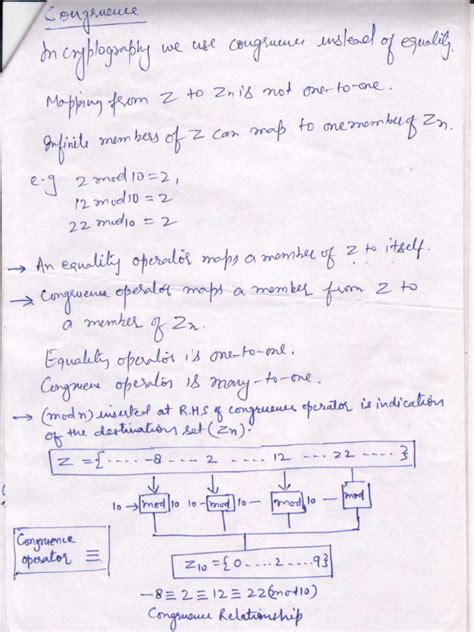 Congruence
In cryptography we use congruence instead of equality.
Mapping from Z to Zn is not one-to-one.
Infinite members of Z can map to one member of Zn.
e.g 2 mod 10 = 2,
12 mod 10 = 2
22 mod 10 = 2
→ An equality operator maps a member of Z to itself.
→ Congruence operator maps a member from Z to
a member of Zn.
Equality operator is one-to-one.
Congruence operator is many-to-one.
→ (mod n) inserted at R.H.S of congruence operator is indication
of the destination set (Zn).
Z = {...... -8 .... 2 ..... 12 .... 22 .....}
10 → mod 10 → mod 10 — mod 10 — mod
Congruence
operator ≡
Z10 = {0 .... 2 .... 9}
-8 ≡ 2 ≡ 12 ≡ 22 (mod 10)
Congruence Relationship